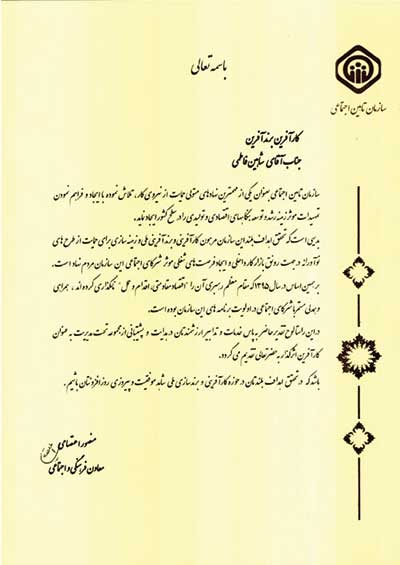 باسمه تعالی
سازمان تامین اجتماعی
کارآفرین برندآفرین
جناب آقای شاهین فاطمی
سازمان تامین اجتماعی بعنوان یکی از مهمترین نهادهای متولی حمایت از نیروی کار، تلاش نموده با ایجاد و فراهم نمودن
تسهیلات موثر زمینه رشد و توسعه بنگاههای اقتصادی و تولیدی را در سطح کشور ایجاد نماید.
بدیهی است که تحقق اهداف بلند این سازمان مرهون کارآفرینی و برندآفرینی ملی و زمینه سازی برای حمایت از طرح های
نوآورانه در جهت رونق بازار کار داخلی و ایجاد فرصت های شغلی موثر شرکای اجتماعی این سازمان مردم نهاد است.
بر همین اساس در سال ۱۳۹۵ که مقام معظم رهبری آن را "اقتصاد مقاومتی، اقدام و عمل" نامگذاری کرده اند، همراهی
و همدلی مستمر با شرکای اجتماعی در اولویت برنامه های این سازمان بوده است.
در این راستا لوح تقدیر حاضر به پاس خدمات و تدابیر ارزشمندتان در هدایت و پشتیبانی از مجموعه تحت مدیریت به عنوان
کارآفرین اثرگذار به حضرتعالی تقدیم می گردد.
باشد که در تحقق اهداف بلندتان در حوزه کارآفرینی و برندسازی ملی شاهد موفقیت و پیروزی روزافزونتان باشیم.
منصور اعتصامی
معاون فرهنگی و اجتماعی